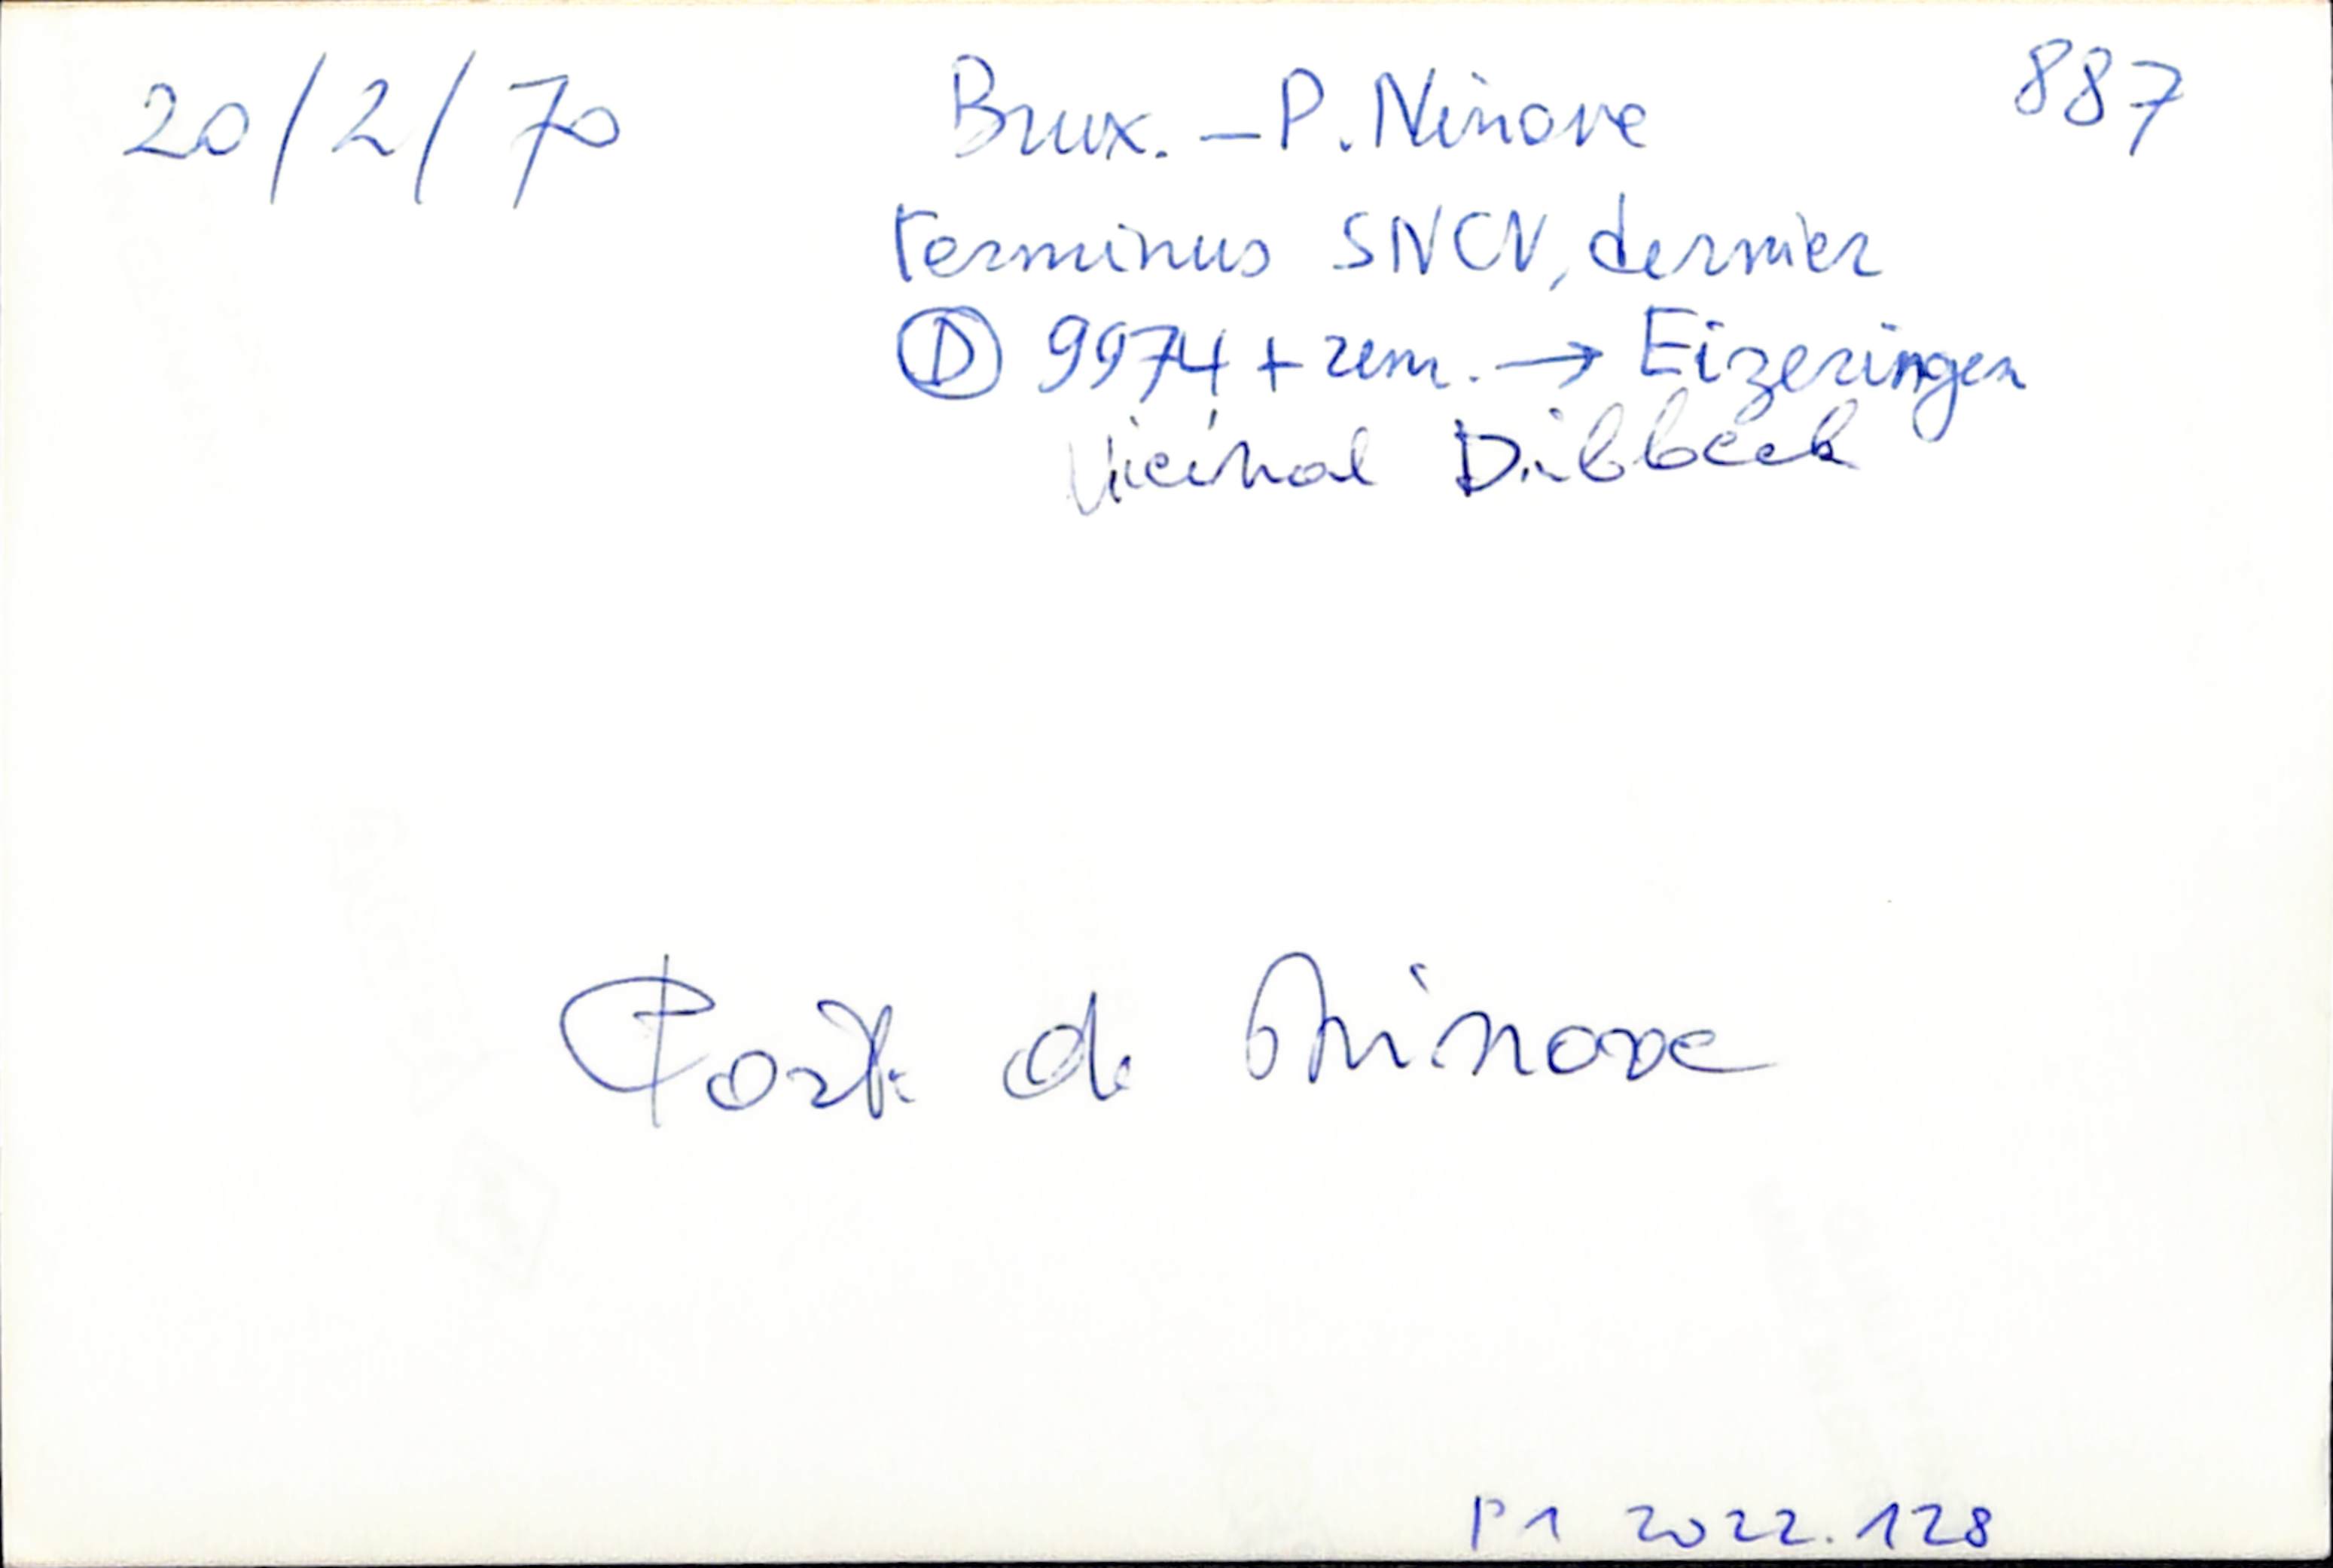 20/2/70
Brux. – P. Ninove
887
terminus SNCV, dernier
Ⓓ 9974 + rem. → Eizeringen
Vicinal Dilbeek
Porte de Ninove
P1 2022.128